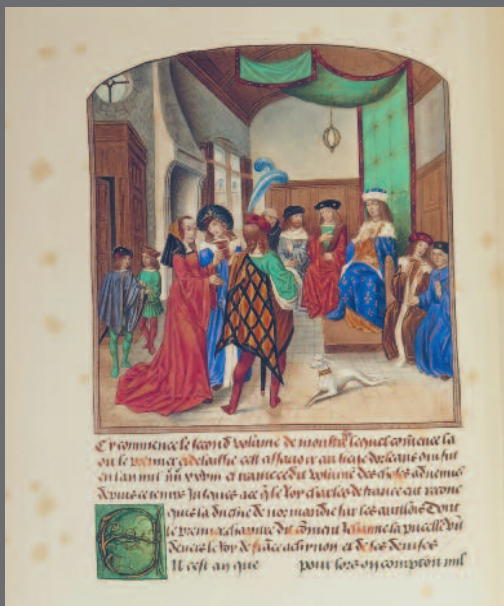 Cy commence le second volume de monstrelet lequel commence la
ou le premier delaisse cest assavoir au siege dorleans qui fut
en lan mil et traicte du volume des choses advenues
depuis ce temps Jusques ace que le Roy charles de france eut recone
quis la duchie de normandie sur les anglois Dont
le premier chapitre dit coment Jehanne la pucelle vint
devers le Roy de france achinon et de ses devises
Il est an que pour lors on compton mil